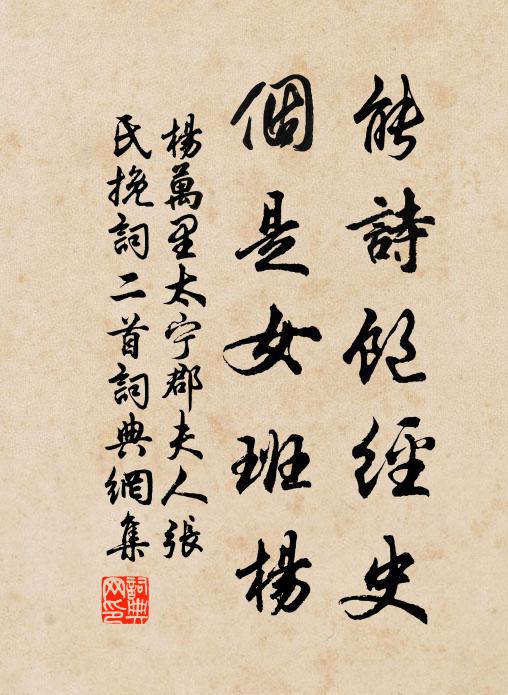 能詩飽經史
個是女班楊
楊萬里太宁郡夫人張
氏挽詞二首詞典網集
詞典
网印